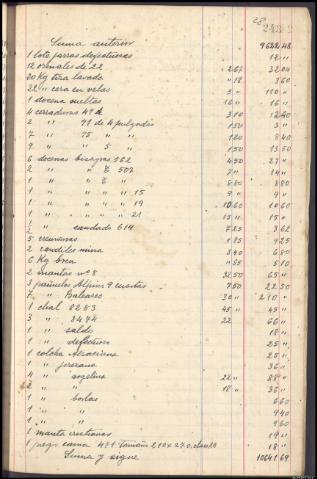 28
Suma anterior 9622 48
1 lote jarras defectuosas 12 "
12 orinales de 22 2 67 32 04
20 Kg tiza lavada " 18 3 60
22 " cera en velas 5 " 110 "
1 docena sueltas 16 " 16 "
4 cerraduras 3 10 12 40
2 " 71 de 4 pulgadas 1 50 3 "
7 " 75 " " 1 20 8 40
9 " " 5 " 1 50 13 50
6 docenas bisagras 562 4 50 27 "
2 " " 507 7 " 14 "
1 " " 8 80 8 80
1 " " " 15 9 " 9 "
1 " " " 19 10 60 10 60
1 " " " 21 15 " 15 "
1/2 " candado 614 7 25 3 62
5 1 85 9 25
2 candiles mina 3 40 6 80
6 Kg brea " 85 5 10
2 mantas nº 8 32 50 65 "
3 pañuelos Alpino 9 cuartas 7 50 22 50
7 " Baleares 30 " 210 "
1 chal 8283 45 " 45 "
3 " 8474 22 66 "
1 " saldo 18 "
1 " defectuoso 25 "
1 colcha 25 "
1 " jerezana 36 "
4 " argelina 22 " 88 "
2 " " 18 " 36 "
1 " bolas 6 60
1 " " 9 40
1 " " 9 60
1 manta 19 "
1 juego cama 471 Tamaño 210 x 270 18 "
Suma y sigue 10641 69